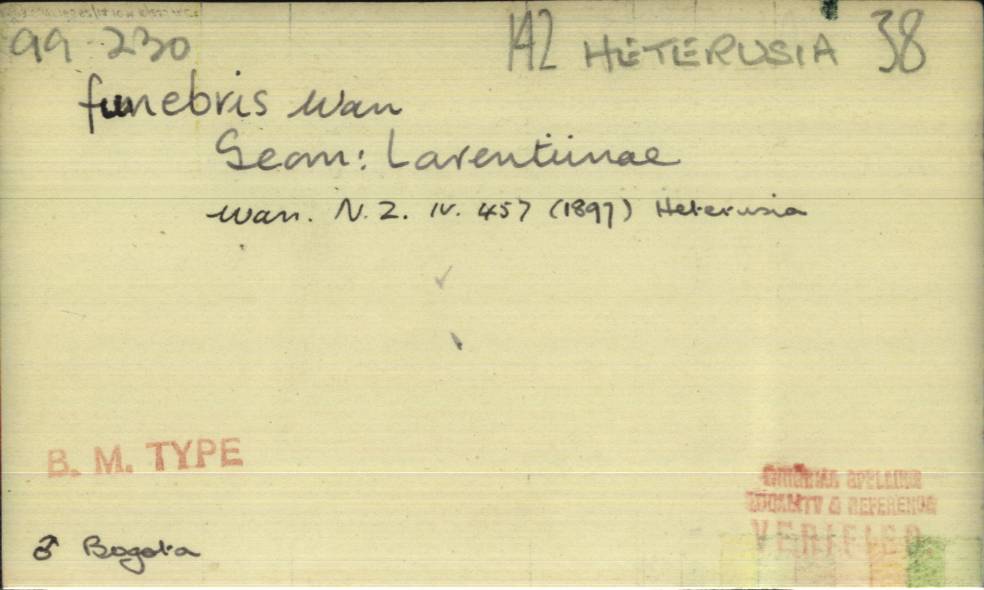 99-230 142 HETERUSIA 38
funebris Warr
Geom: Larentiinae
Warr. N. Z. IV. 457 (1897) Heterusia
B. M. TYPE
ORIGINAL SPELLING
LOCALITY & REFERENCE
VERIFIED
♂ Bogota